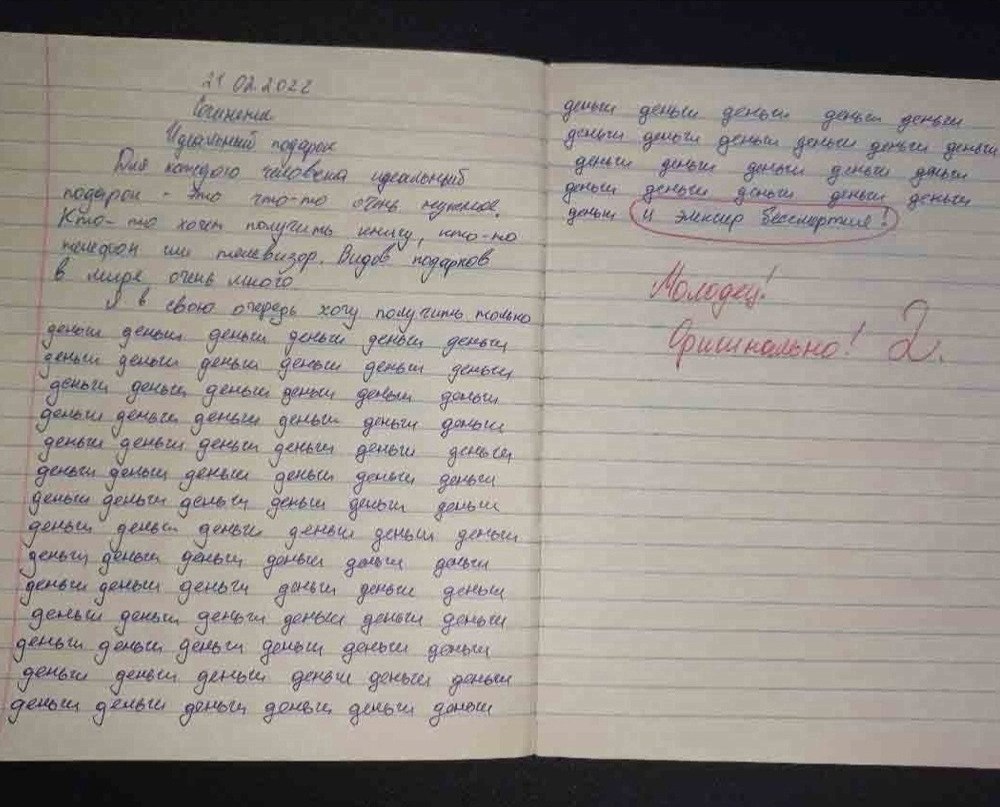 21.02.2022
Сочинение
Идеальный подарок
Для каждого человека идеальный
подарок - это что-то очень нужное.
Кто-то хочет получить книгу, кто-то
телефон или телевизор. Видов подарков
в мире очень много.
Я в свою очередь хочу получить только
деньги деньги деньги деньги деньги деньги
деньги деньги деньги деньги деньги деньги
деньги деньги деньги деньги деньги деньги
деньги деньги деньги деньги деньги деньги
деньги деньги деньги деньги деньги деньги
деньги деньги деньги деньги деньги деньги
деньги деньги деньги деньги деньги деньги
деньги деньги деньги деньги деньги деньги
деньги деньги деньги деньги деньги деньги
деньги деньги деньги деньги деньги деньги
деньги деньги деньги деньги деньги деньги
деньги деньги деньги деньги деньги деньги
деньги деньги деньги деньги деньги деньги
деньги деньги деньги деньги деньги деньги
деньги деньги деньги деньги деньги
деньги деньги деньги деньги деньги деньги
деньги деньги деньги деньги деньги
деньги деньги деньги деньги деньги
деньги и эликсир бессмертия!
Молодец!
Оригинально! 2.